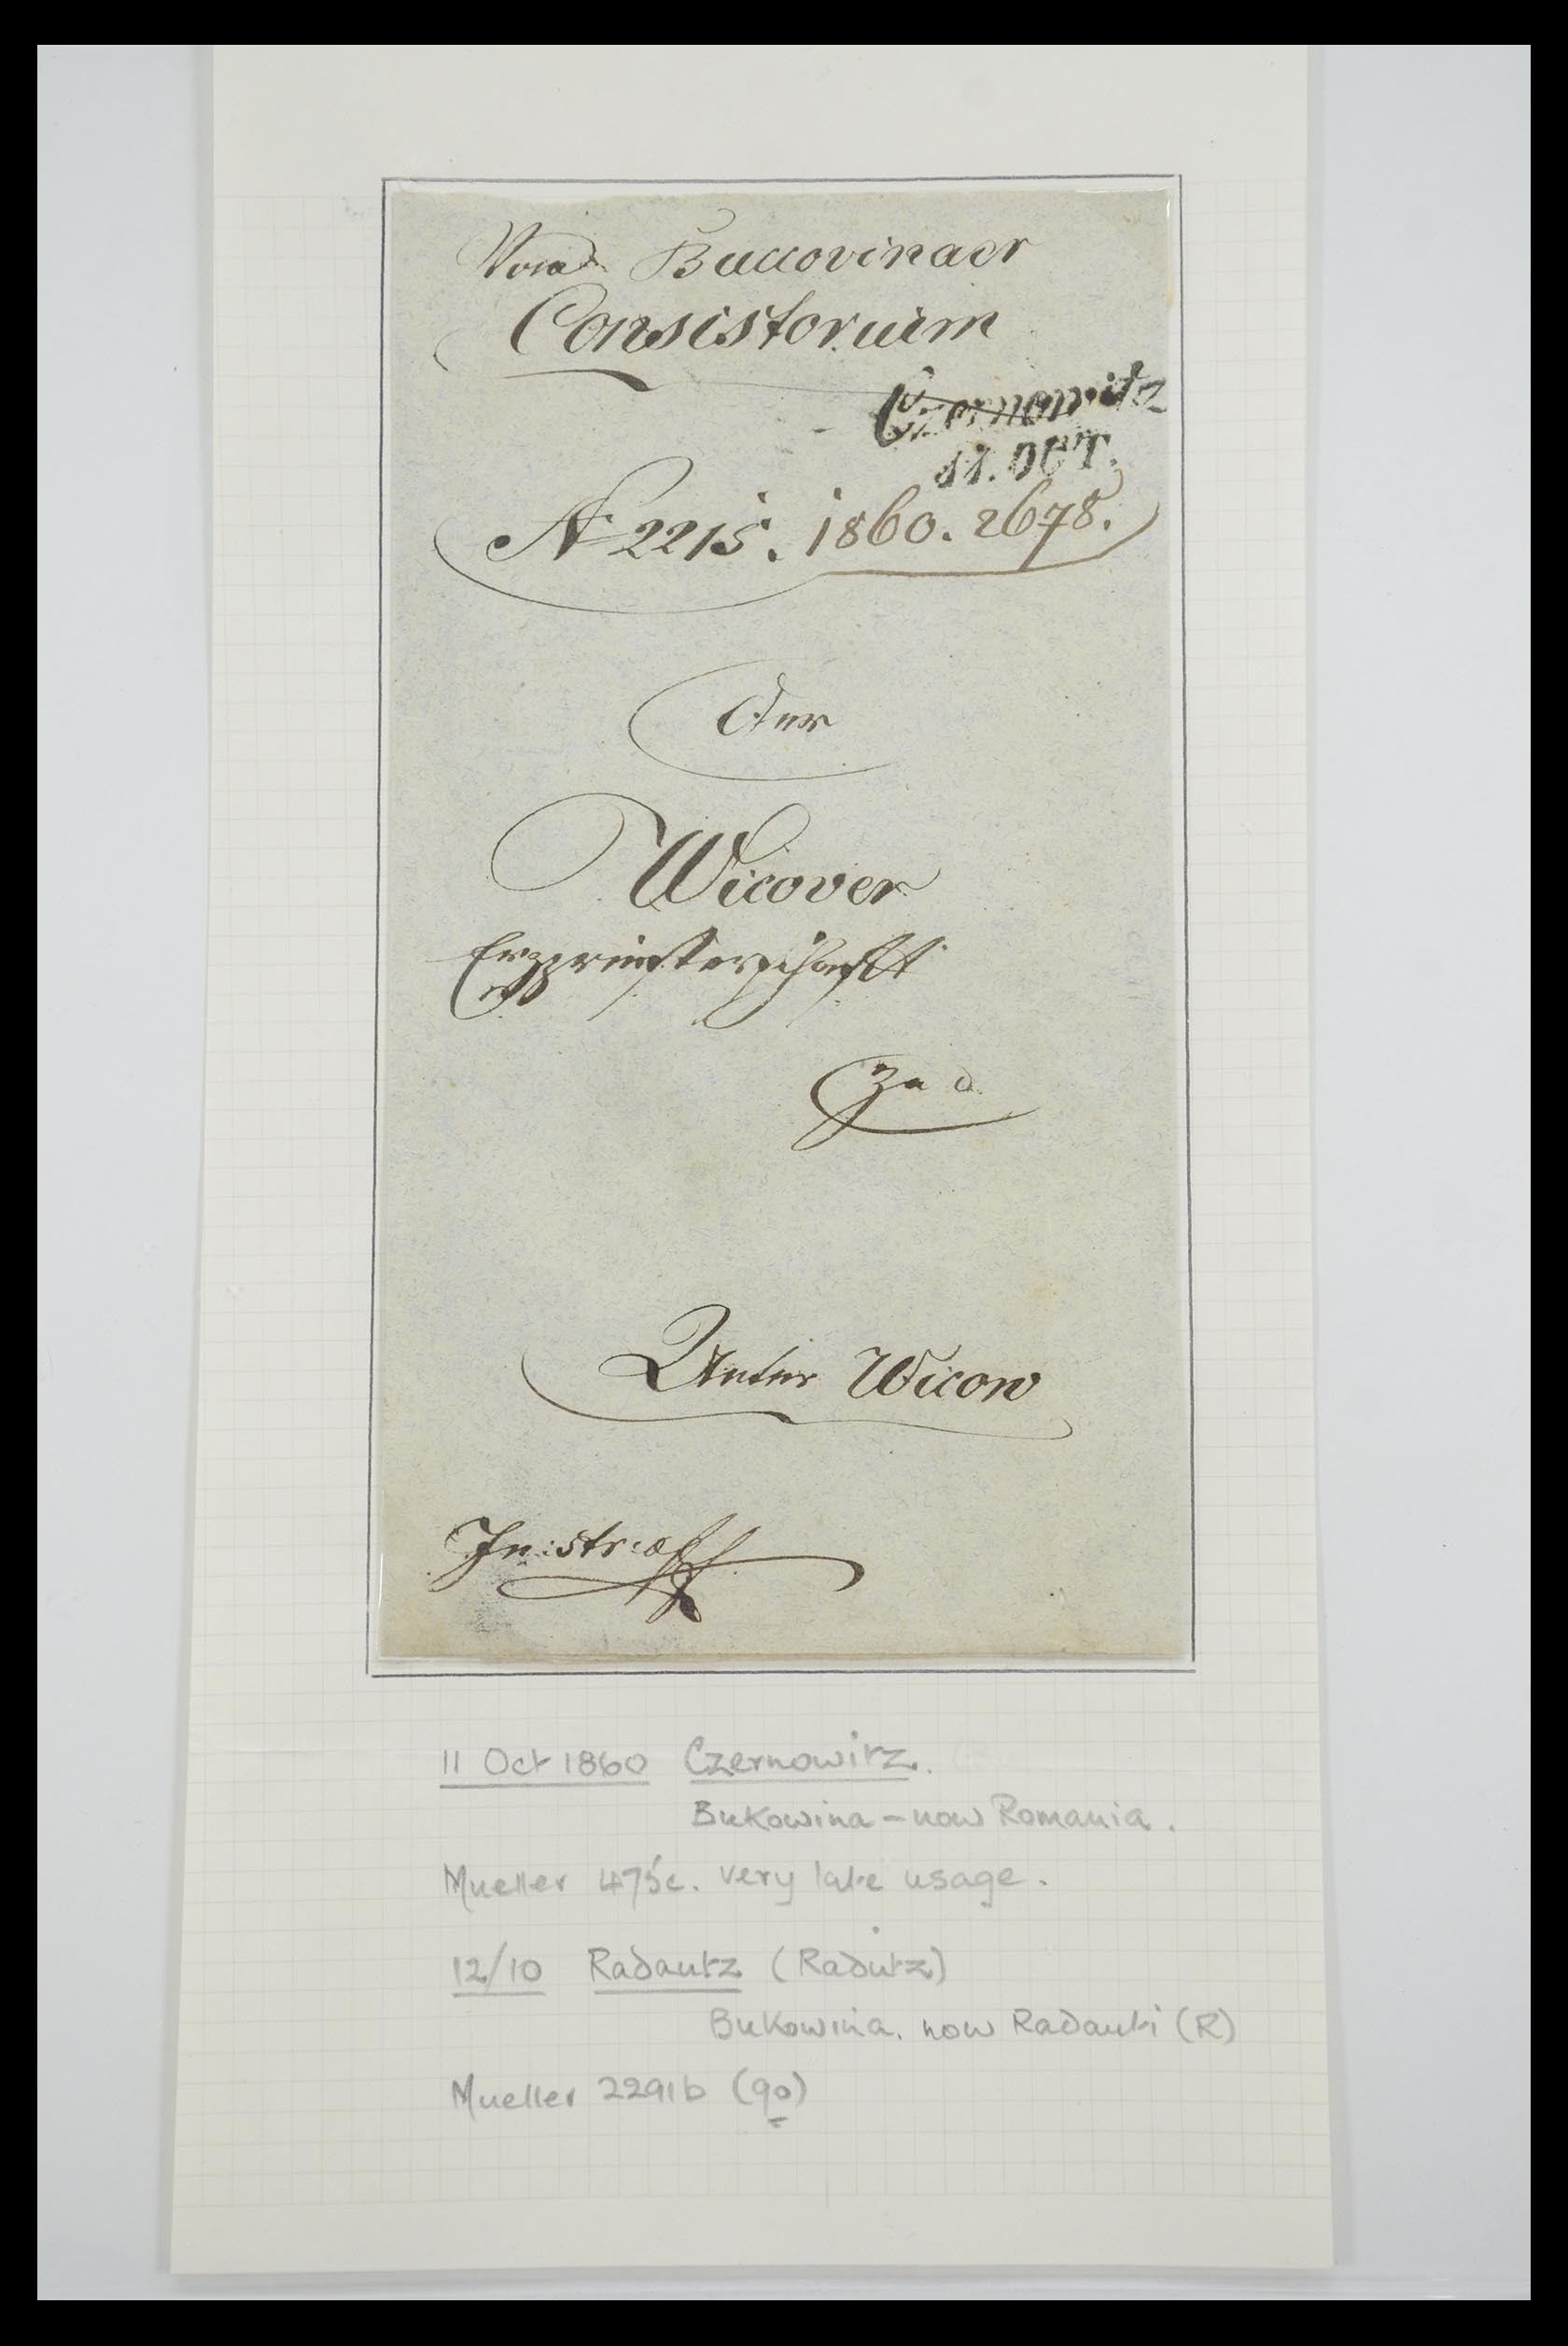 Vom Buccovinaer
Consistorium
Czernowitz
11. OCT.
N 2215. 1860. 2678.
Der
Wicover
Erzpriesterschaft
Zu
Unter Wicow
In: str: off
11 Oct 1860 Czernowitz.
Bukowina - now Romania.
Mueller 475c. very late usage.
12/10 Radautz (Radutz)
Bukowina. now Radauti (R)
Mueller 2291b (90)